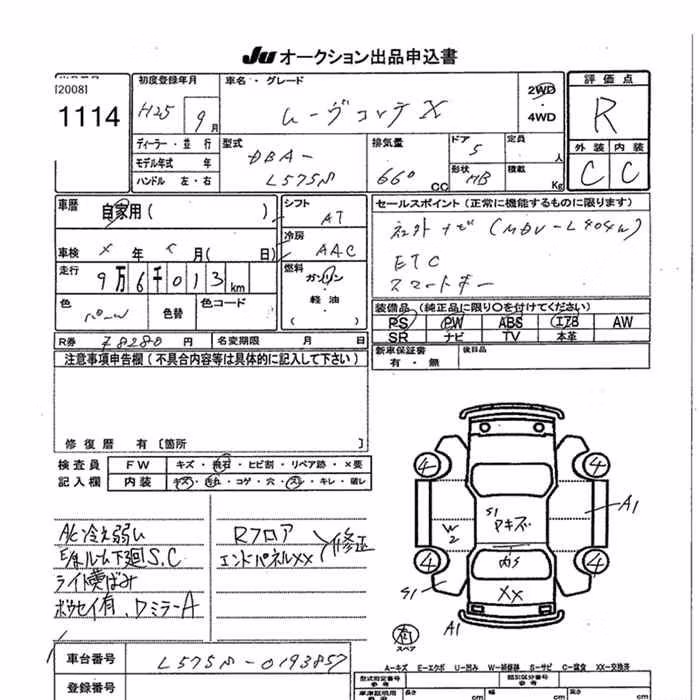 JU オークション出品申込書
[2008]
1114
初度登録年月
H25 9月
車名・グレード
ムーヴコンテ X
2WD
・
4WD
評価点
R
外装 内装
C C
ディーラー・並行
モデル年式 年
ハンドル 左・右
型式
DBA-
L575S
排気量
660 CC
ドア
5
形状
HB
定員
人
積載
Kg
車歴
自家用( )
車検 × 年 × 月( 日)
走行
9万6千013km
色
パール
色替
色コード
シフト
AT
冷房
AAC
燃料
ガソリン
・
軽油
・
( )
セールスポイント(正常に機能するものに限ります)
社外ナビ(MDV-L404W)
ETC
スマートキー
装備品(純正品に限り〇を付けてください)
PS PW ABS エアB AW
SR ナビ TV 本革
R券 78280円 名変期限 月 日
新車保証書
有・無
後日品
注意事項申告欄(不具合内容等は具体的に記入して下さい)
修復歴 有[箇所 ]
検査員
記入欄
FW キズ・飛石・ヒビ割・リペア跡・×要
内装 キズ・汚れ・コゲ・穴・スレ・キレ・破レ
A/C冷え弱い
E/ルーム下廻S.C
ライト黄ばみ
ボウセイ有、DミラーA
Rフロア
エンドパネルXX
修正
4
4
A1
S1
アキズ
W
2
4
4
内S
XX
S1
A1
有
スペア
A-キズ E-エクボ U-凹み W-補修跡 S-サビ C-腐食 XX-交換済
車台番号 L575S-0193857
登録番号
型式指定番号
参考
類別区分番号
参考
車庫証明用
長さ cm
幅 cm
高さ cm